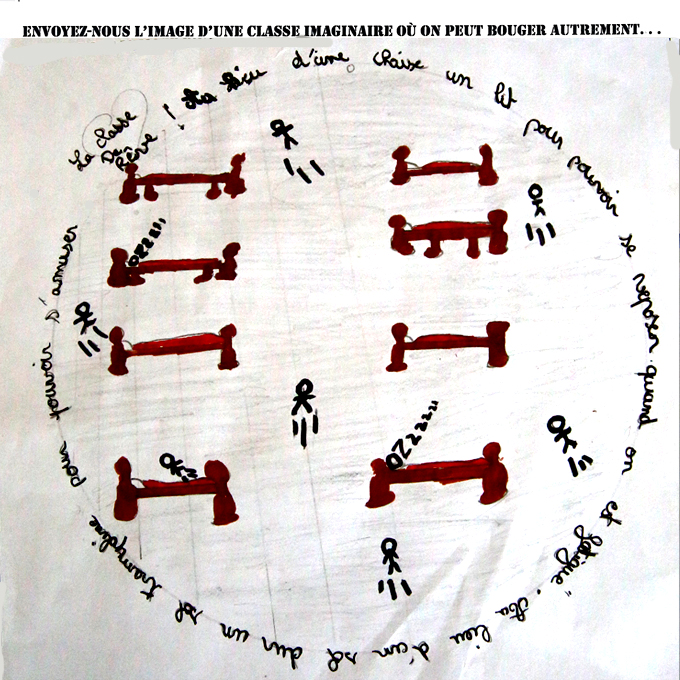 ENVOYEZ-NOUS L'IMAGE D'UNE CLASSE IMAGINAIRE OÙ ON PEUT BOUGER AUTREMENT...
La classe
De
Rêve
! Au lieu d'une chaise un lit pour pouvoir se reposer quand on est fatigué". Au lieu d'un sol dur un sol trampoline pour pouvoir s'amuser
OZZZzzz
OZZZzzz